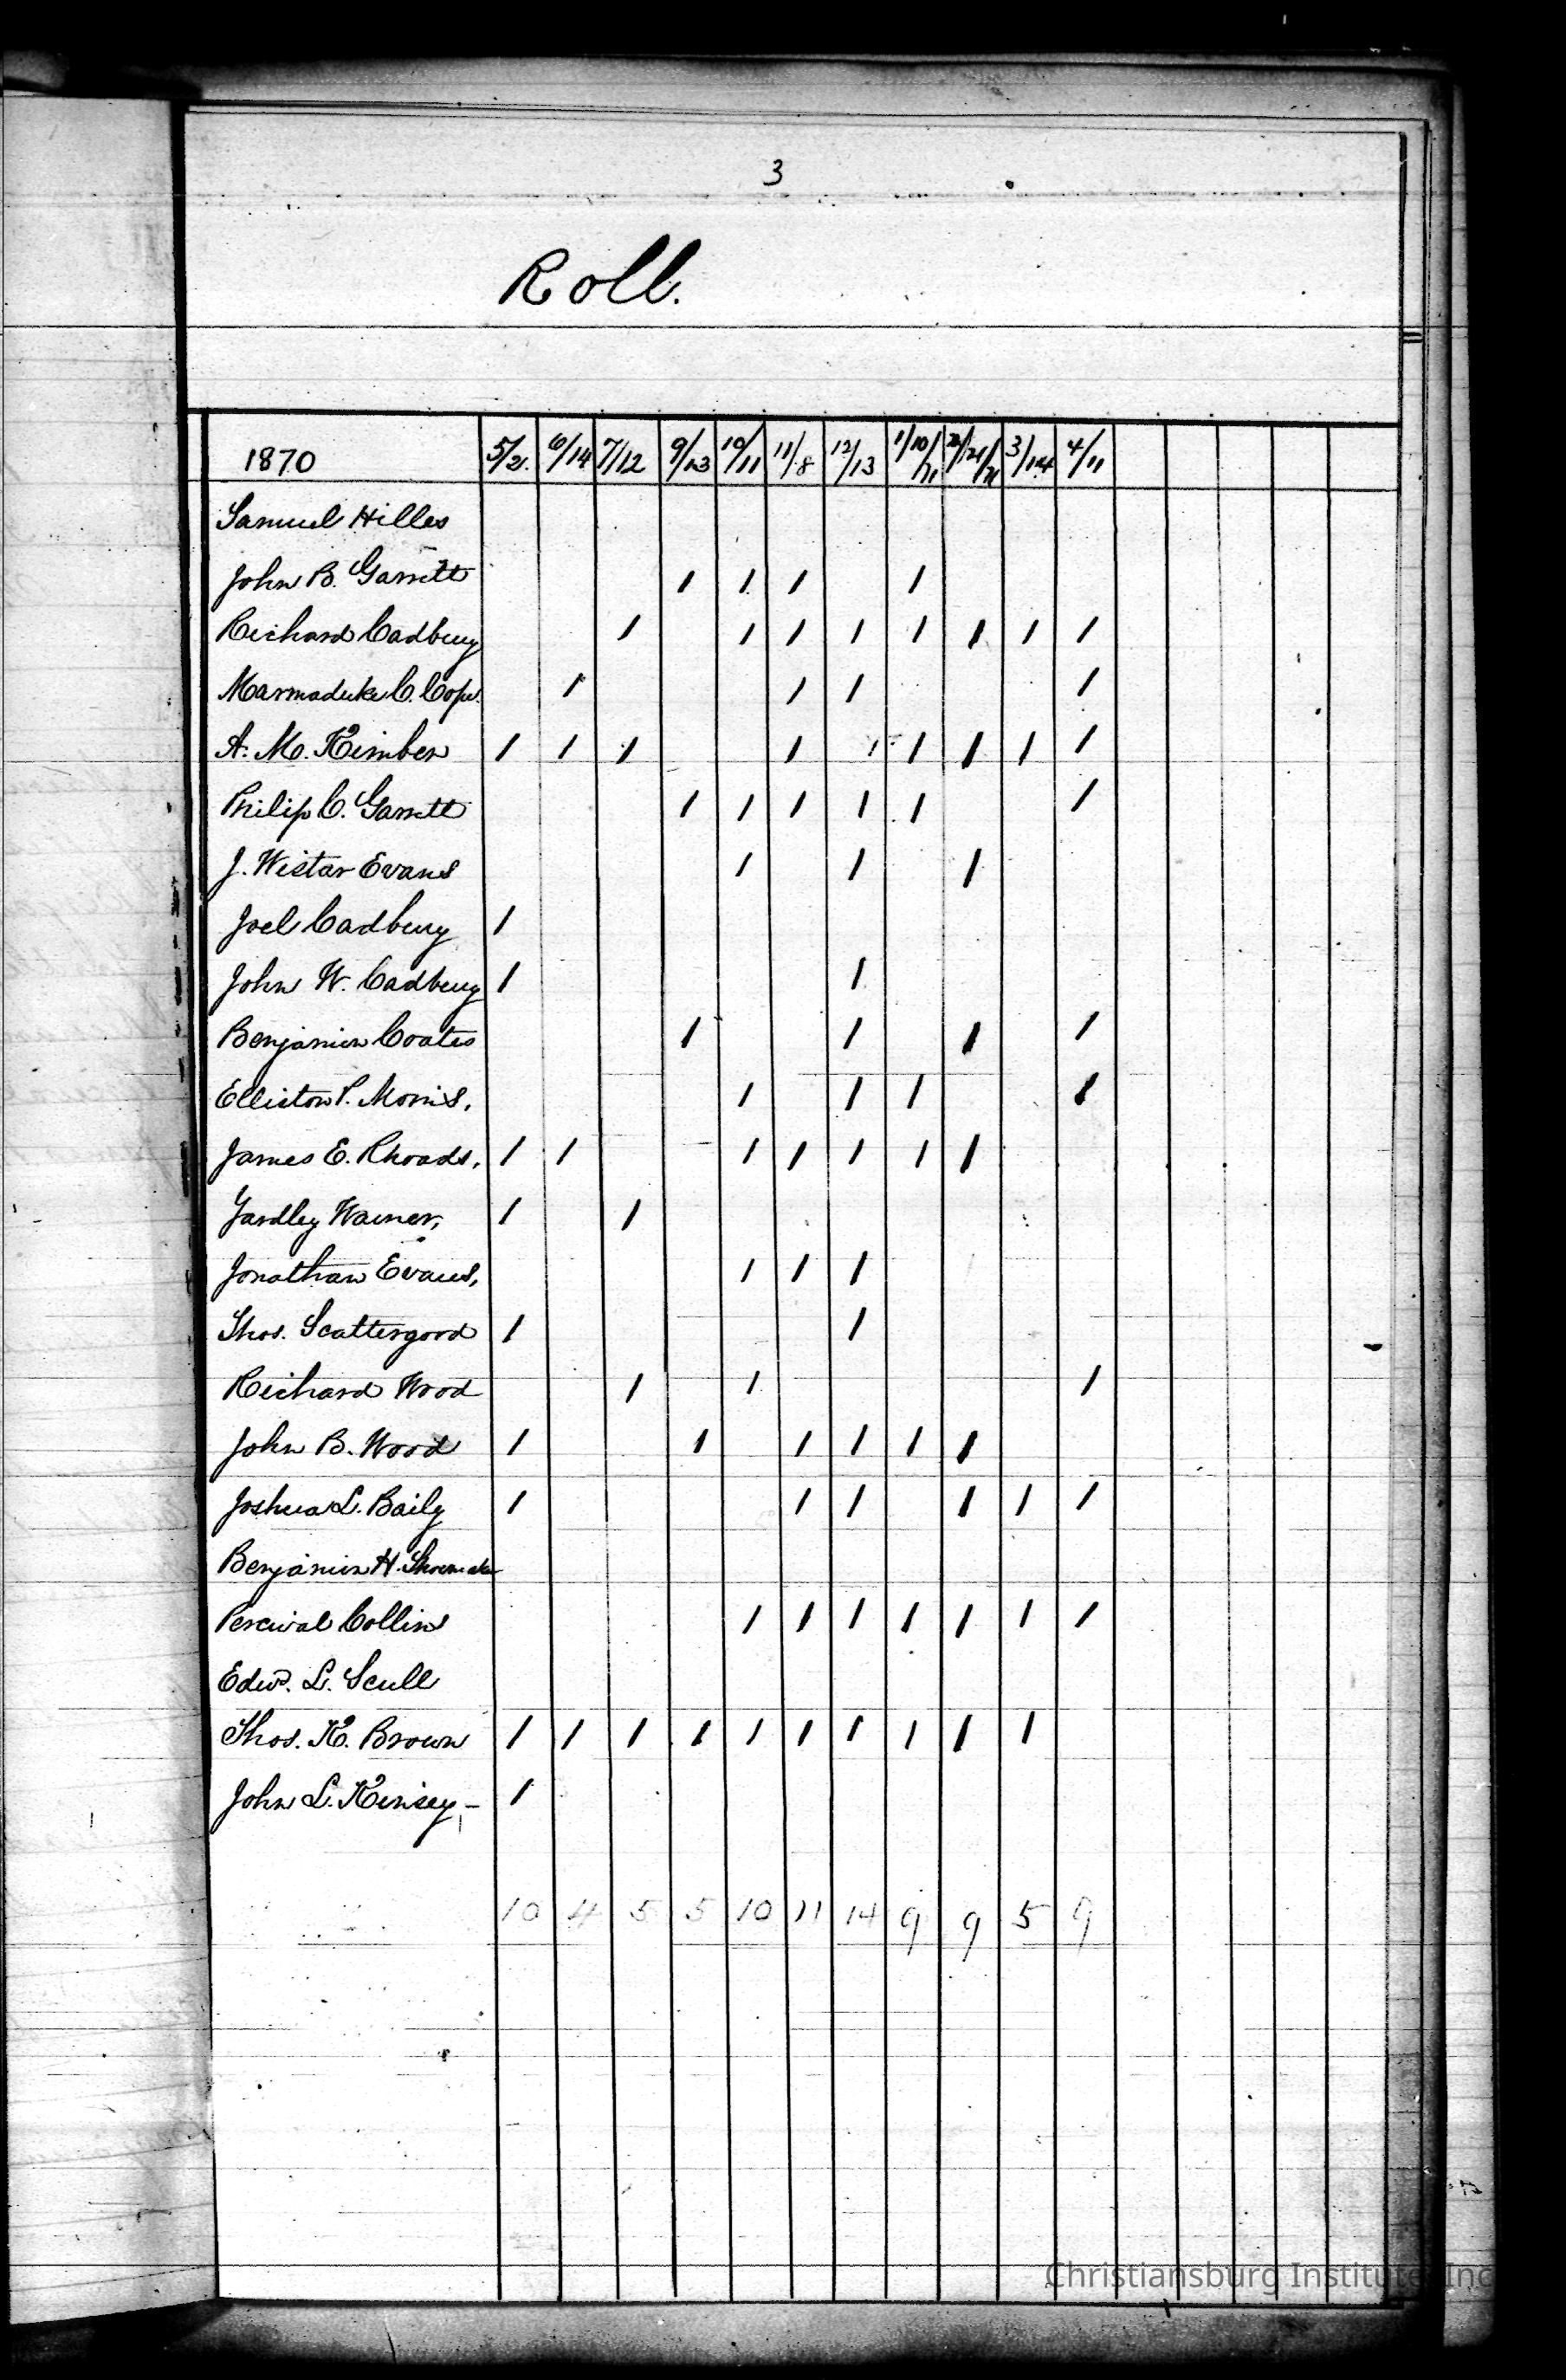 3
Roll.
1870 5/2. 6/14 7/12 9/13 10/11 11/8 12/13 1/10/71 2/21/71 3/14 4/11
Samuel Hilles
John B. Garrett 1 1 1 1
Richard Cadbury 1 1 1 1 1 1 1 1
Marmaduke C. Cope. 1 1 1 1
A. M. Kimber 1 1 1 1 1 1 1 1 1
Philip C. Garrett 1 1 1 1 1 1
J. Wistar Evans 1 1 1
Joel Cadbury 1
John W. Cadbury 1 1
Benjamin Coates 1 1 1 1
Elliston P. Morris, 1 1 1 1
James E. Rhoads, 1 1 1 1 1 1 1
Yardley Warner, 1 1
Jonathan Evans, 1 1 1
Thos. Scattergood 1 1
Richard Wood 1 1 1
John B. Wood 1 1 1 1 1 1
Joshua L. Baily 1 1 1 1 1 1
Benjamin H. Shoemaker
Percival Collins 1 1 1 1 1 1 1
Edw. L. Scull
Thos. K. Brown 1 1 1 1 1 1 1 1 1 1
John L. Kinsey - 1
10 4 5 5 10 11 14 9 9 5 9
Christiansburg Institute, Inc